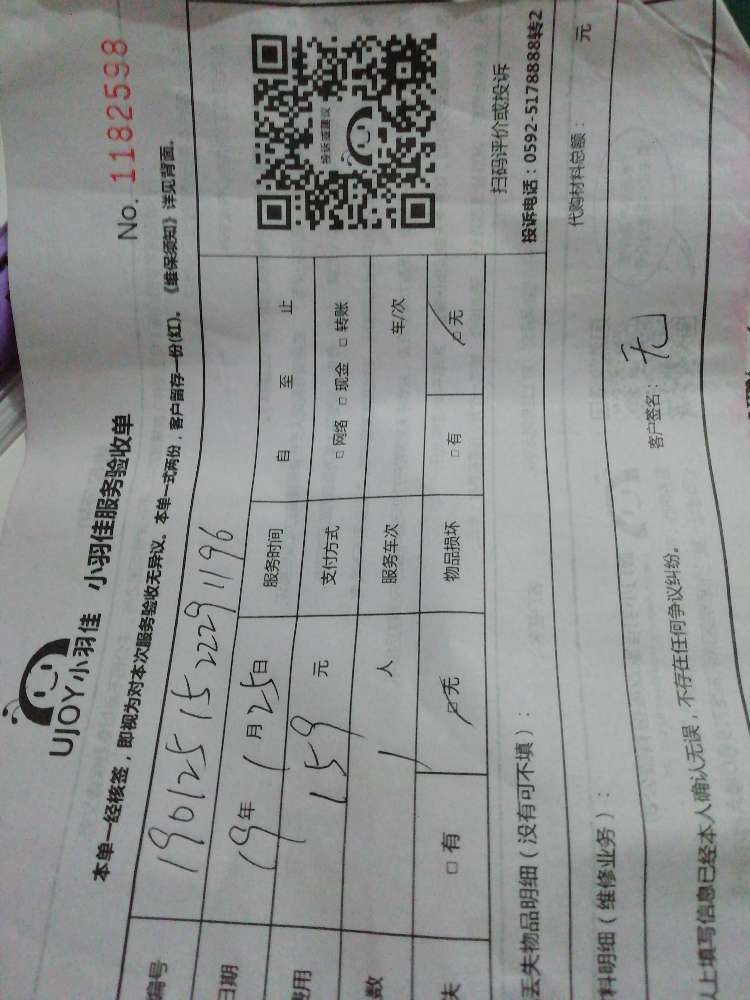 UJOY小羽佳 小羽佳服务验收单
No. 1182598
本单一经核签，即视为对本次服务验收无异议。本单一式两份，客户留存一份(红)。《维保须知》详见背面。
编号 190125152229 1196
日期 19年 1月25日 服务时间 自 至 止
费用 159 元 支付方式 □ 网络 □ 现金 □ 转账
数 1 人 服务车次 车/次
失 □ 有 □ 无 物品损坏 □ 有 □ 无
投诉或建议
扫码评价或投诉
投诉电话：0592-5178888转2
丢失物品明细（没有可不填）：
料明细（维修业务）： 代购材料总额： 元
客户签名： 无
上填写信息已经本人确认无误，不存在任何争议纠纷。